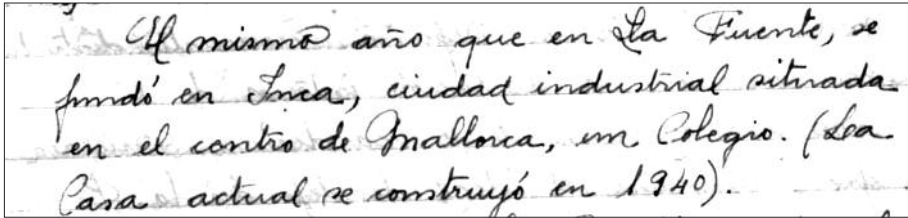 El mismo año que en La Fuente, se
fundó en Inca, ciudad industrial situada
en el centro de Mallorca, un Colegio. (La
Casa actual se construyó en 1940).